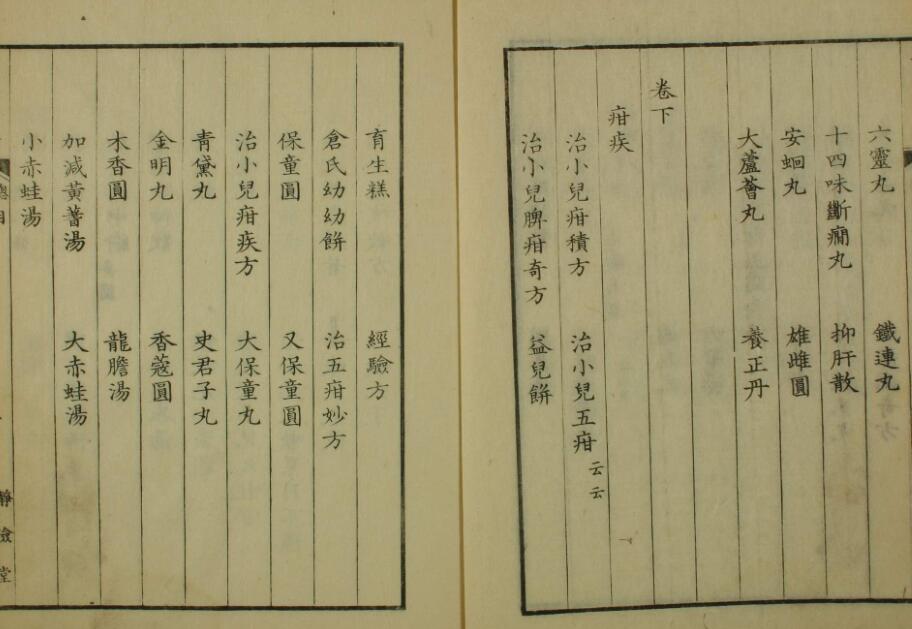 六靈丸 鐵連丸
十四味斷癎丸 抑肝散
安蛔丸 雄雌圓
大蘆薈丸 養正丹
卷下
疳疾
治小兒疳積方 治小兒五疳云云
治小兒脾疳奇方 益兒餅
育生糕 經驗方
倉氏幼幼餅 治五疳妙方
保童圓 又保童圓
治小兒疳疾方 大保童丸
青黛丸 史君子丸
金明丸 香蔻圓
木香圓 龍膽湯
加減黃蓍湯 大赤蛙湯
小赤蛙湯
總目
靜儉堂